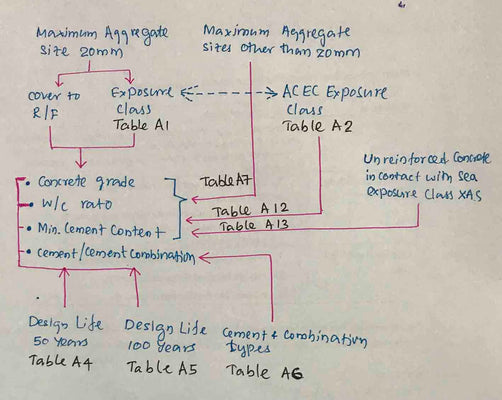 Maximum Aggregate
size 20mm
Maximum Aggregate
sizes other than 20mm
cover to
R/F
Exposure
class
Table A1
ACEC Exposure
Class
Table A2
Unreinforced Concrete
in contact with sea
exposure Class XAS
• Concrete grade
• W/c ratio
• Min. Cement Content
• cement/cement combination
Table A7
Table A12
Table A13
Design Life
50 years
Table A4
Design Life
100 years
Table A5
Cement & Combination
types
Table A6